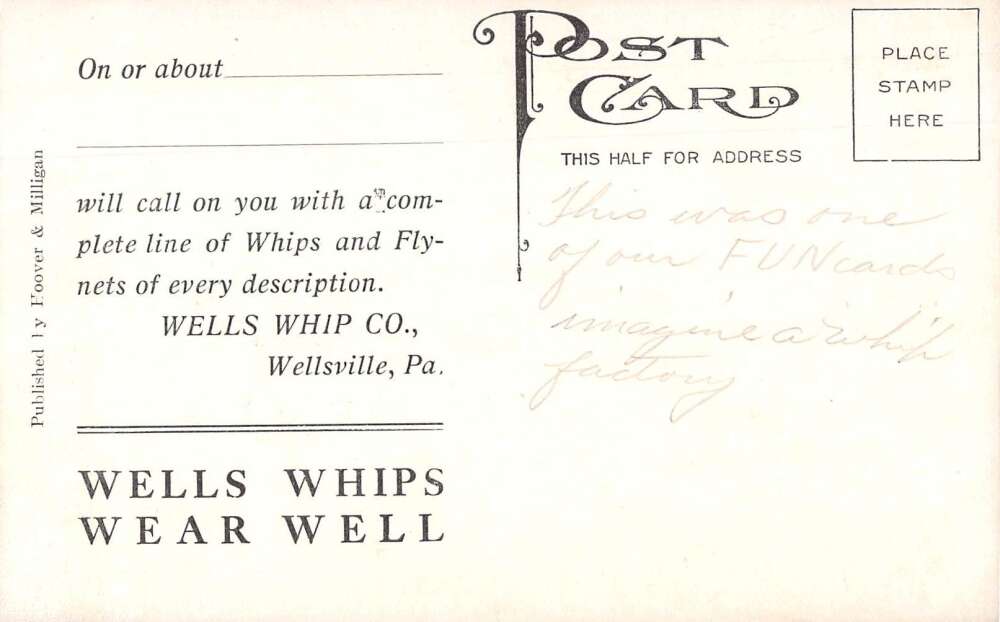 On or about
will call on you with a com-
plete line of Whips and Fly-
nets of every description.
WELLS WHIP CO.,
Wellsville, Pa.
WELLS WHIPS
WEAR WELL
Published by Hoover & Milligan
POST
CARD
THIS HALF FOR ADDRESS
PLACE
STAMP
HERE
This was one
of our FUN cards
imagine a whip
factory